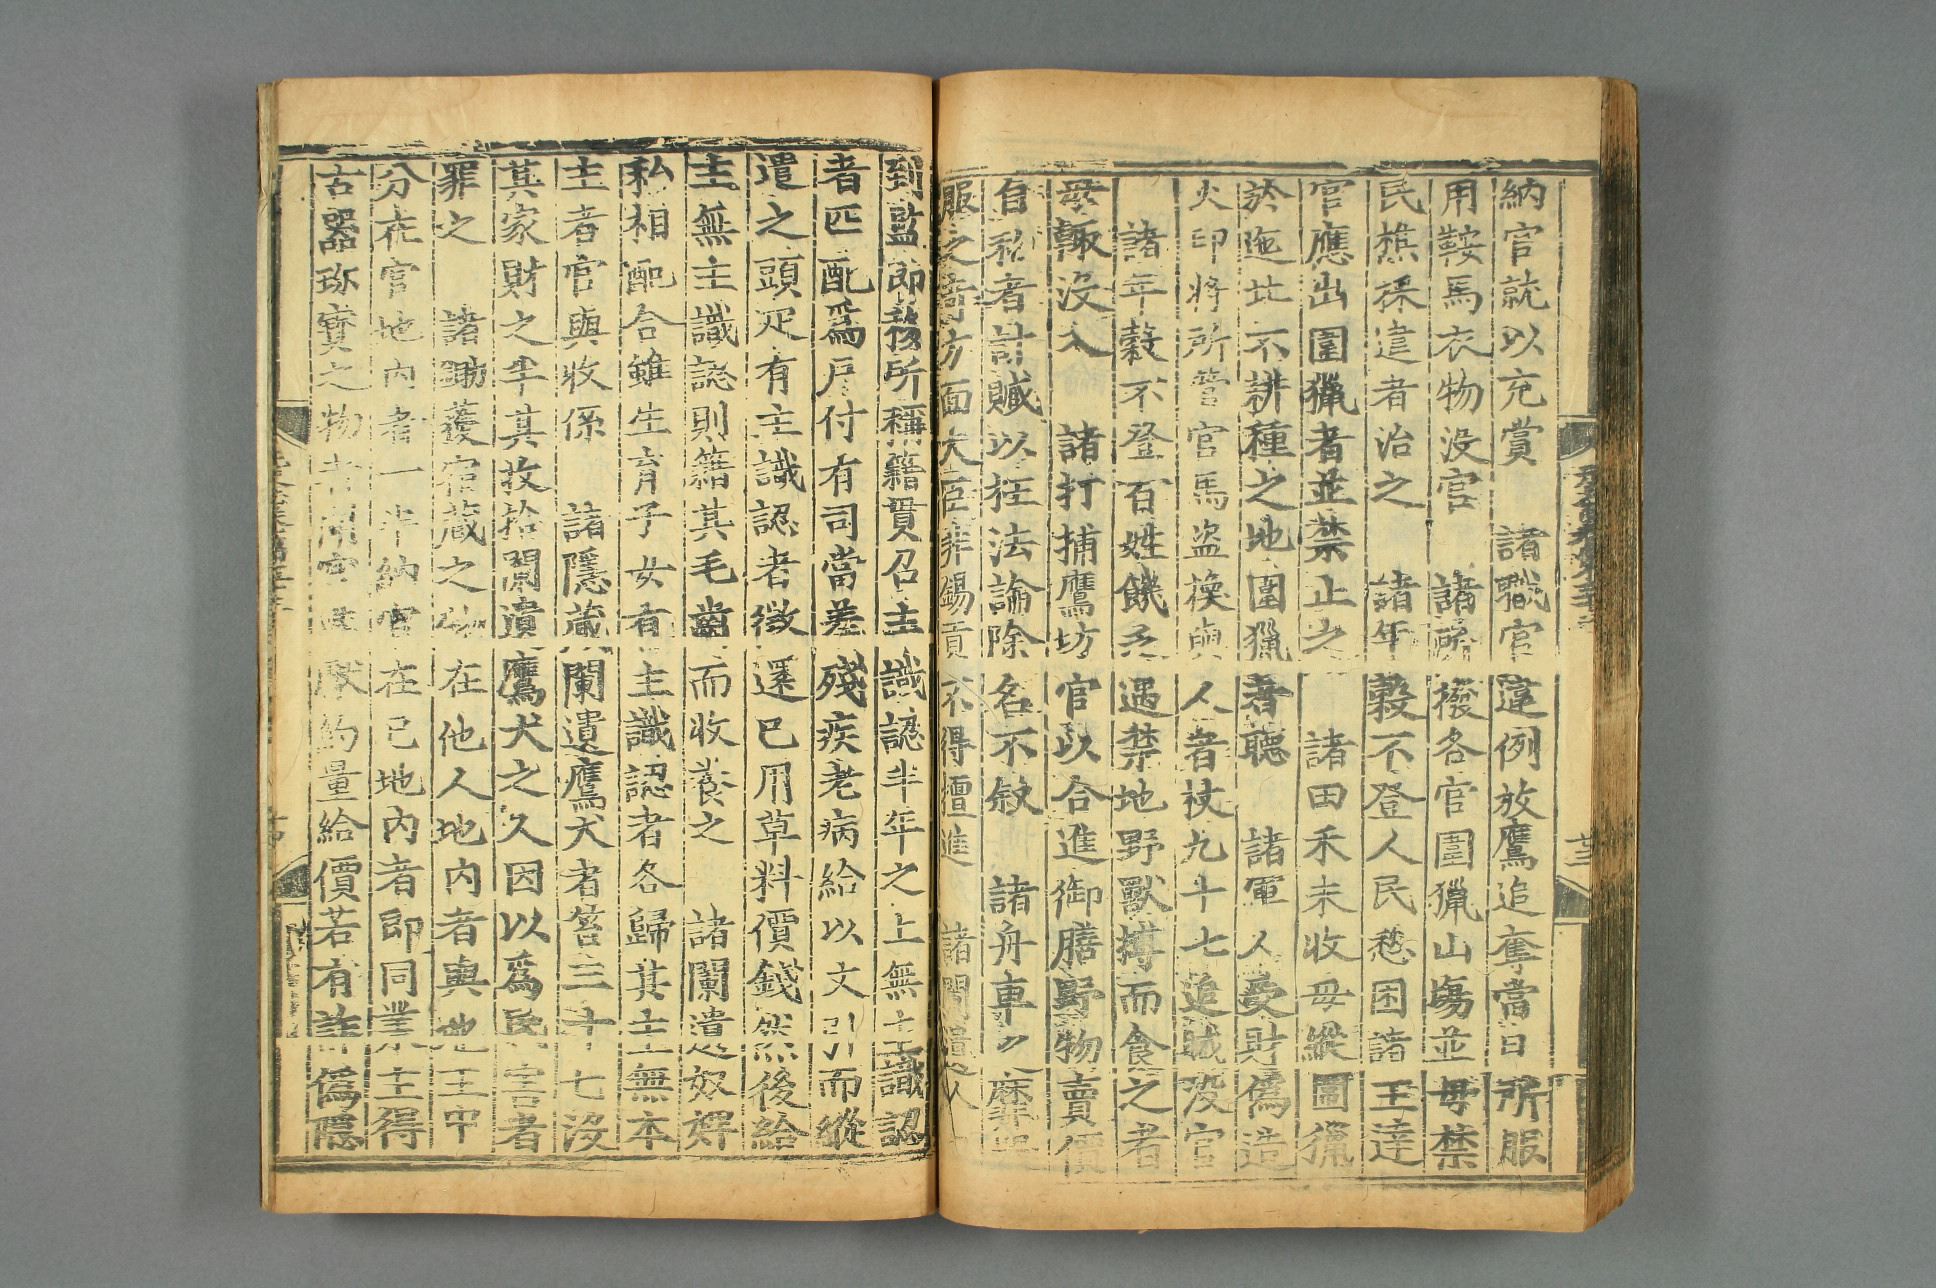 納官就以充賞　諸職官違例放鷹追奪當日所服
用鞍馬衣物没官　諸所撥各官圍獵山塲並毋禁
民樵採違者治之　諸年穀不登人民愁困諸王達
官應出圍獵者並禁止之　諸田禾未收毋縱圍獵
於迤北不耕種之地圍獵者聽　諸軍人受財僞造
火印將所管官馬盗換與人者杖九十七追贓没官
諸年穀不登百姓饑乏遇禁地野獸搏而食之者
毋輒没入　諸打捕鷹坊官以合進御膳野物賣價
自私者計贓以枉法論除名不敘　諸舟車之靡
服之竒方面大臣非錫貢不得擅進　諸闌遺人
到監即移所稱籍貫召主識認半年之上無主識認
者匹配爲戶付有司當差殘疾老病給以文引而縱
遣之頭疋有主識認者徵還已用草料價錢然後給
主無主識認則籍其毛齒而收養之　諸闌遺奴婢
私相配合雖生育子女有主識認者各歸其主無本
主者官與收係　諸隱藏闌遺鷹犬者笞三十七没
其家財之半其收拾闌遺鷹犬之人因以爲民害者
罪之　諸鋤𫉬宿藏之物在他人地内者與地主中
分在官地内者一半納官在已地内者即同業主得
古器珍寳之物者聞官進獻約量給價若有詐僞隱